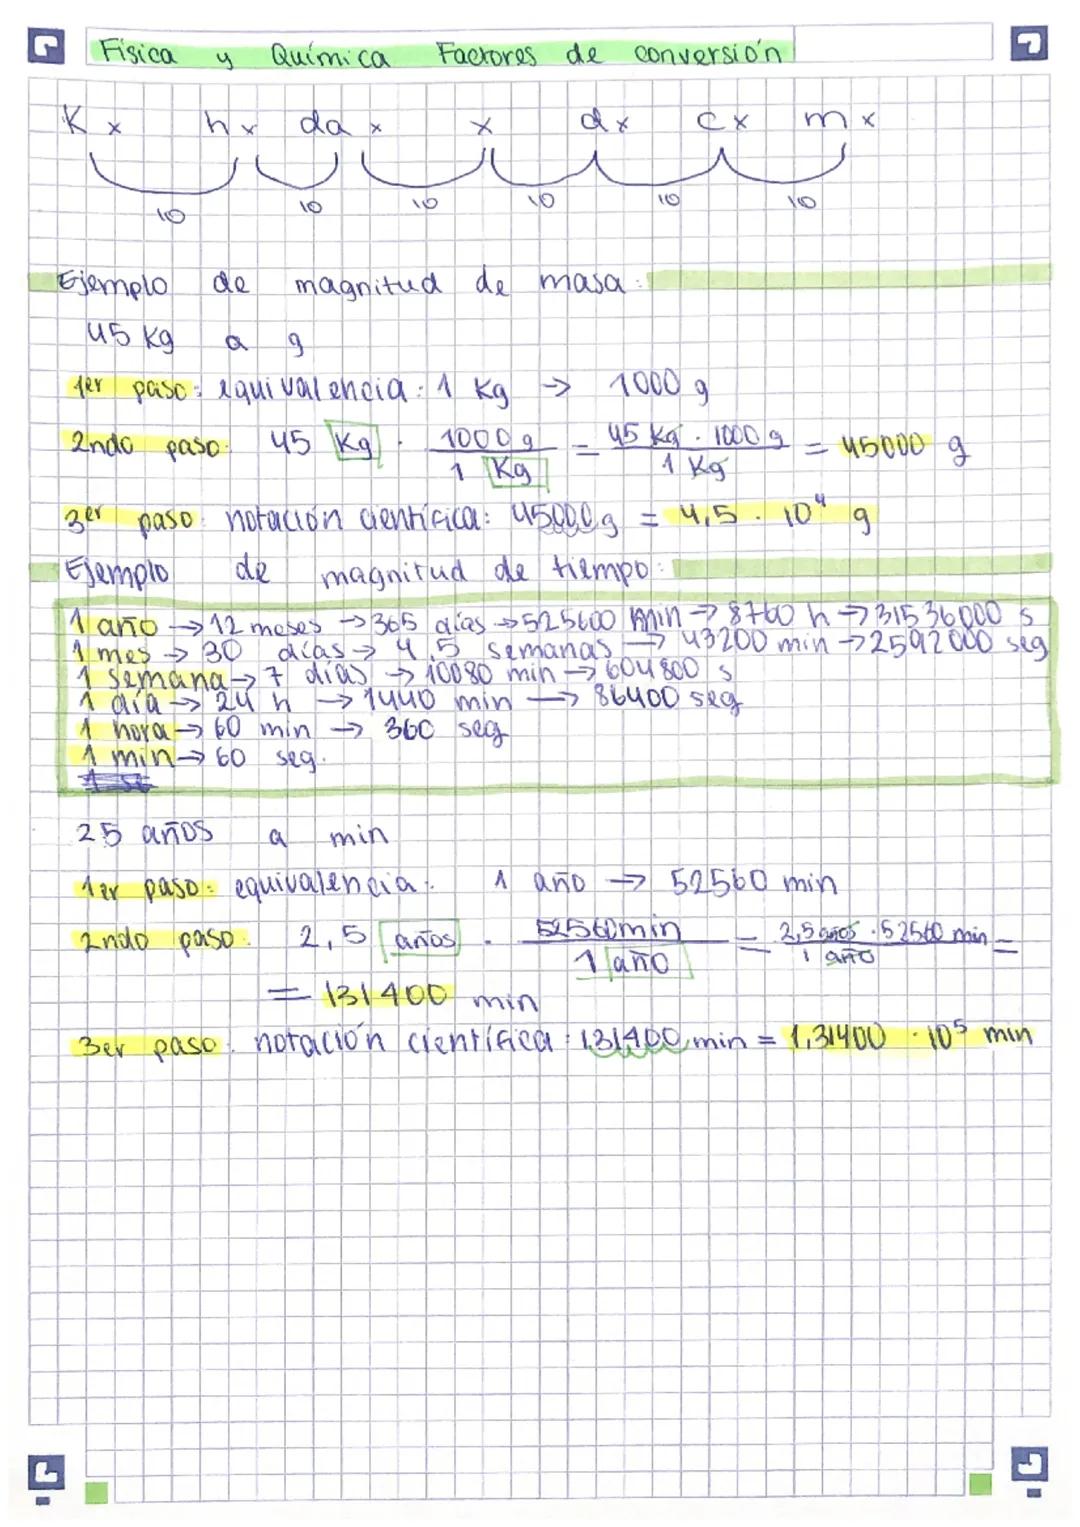 Física y Química Factores de conversión
Kx hx dax x dx cx mx
10 10 10 10 10 10
Ejemplo de magnitud de masa:
45 Kg a g
1er paso: equivalencia: 1 Kg → 1000 g
2ndo paso: 45 Kg · 1000 g / 1 Kg = 45 Kg · 1000 g / 1 Kg = 45000 g
3er paso: notación científica: 45000g = 4,5 · 10⁴ g
Ejemplo de magnitud de tiempo:
1 año → 12 meses → 365 días → 525600 min → 8760 h → 31536000 s
1 mes → 30 días → 4,5 semanas → 43200 min → 2592000 seg
1 semana → 7 días → 10080 min → 604800 s
1 día → 24 h → 1440 min → 86400 seg
1 hora → 60 min → 360 seg
1 min → 60 seg.
25 años a min
1er paso: equivalencia: 1 año → 52560 min
2ndo paso: 2,5 años · 52560min / 1 año = 2,5 años · 52560 min / 1 año =
= 131400 min
3er paso: notación científica: 131400 min = 1,31400 · 10⁵ min